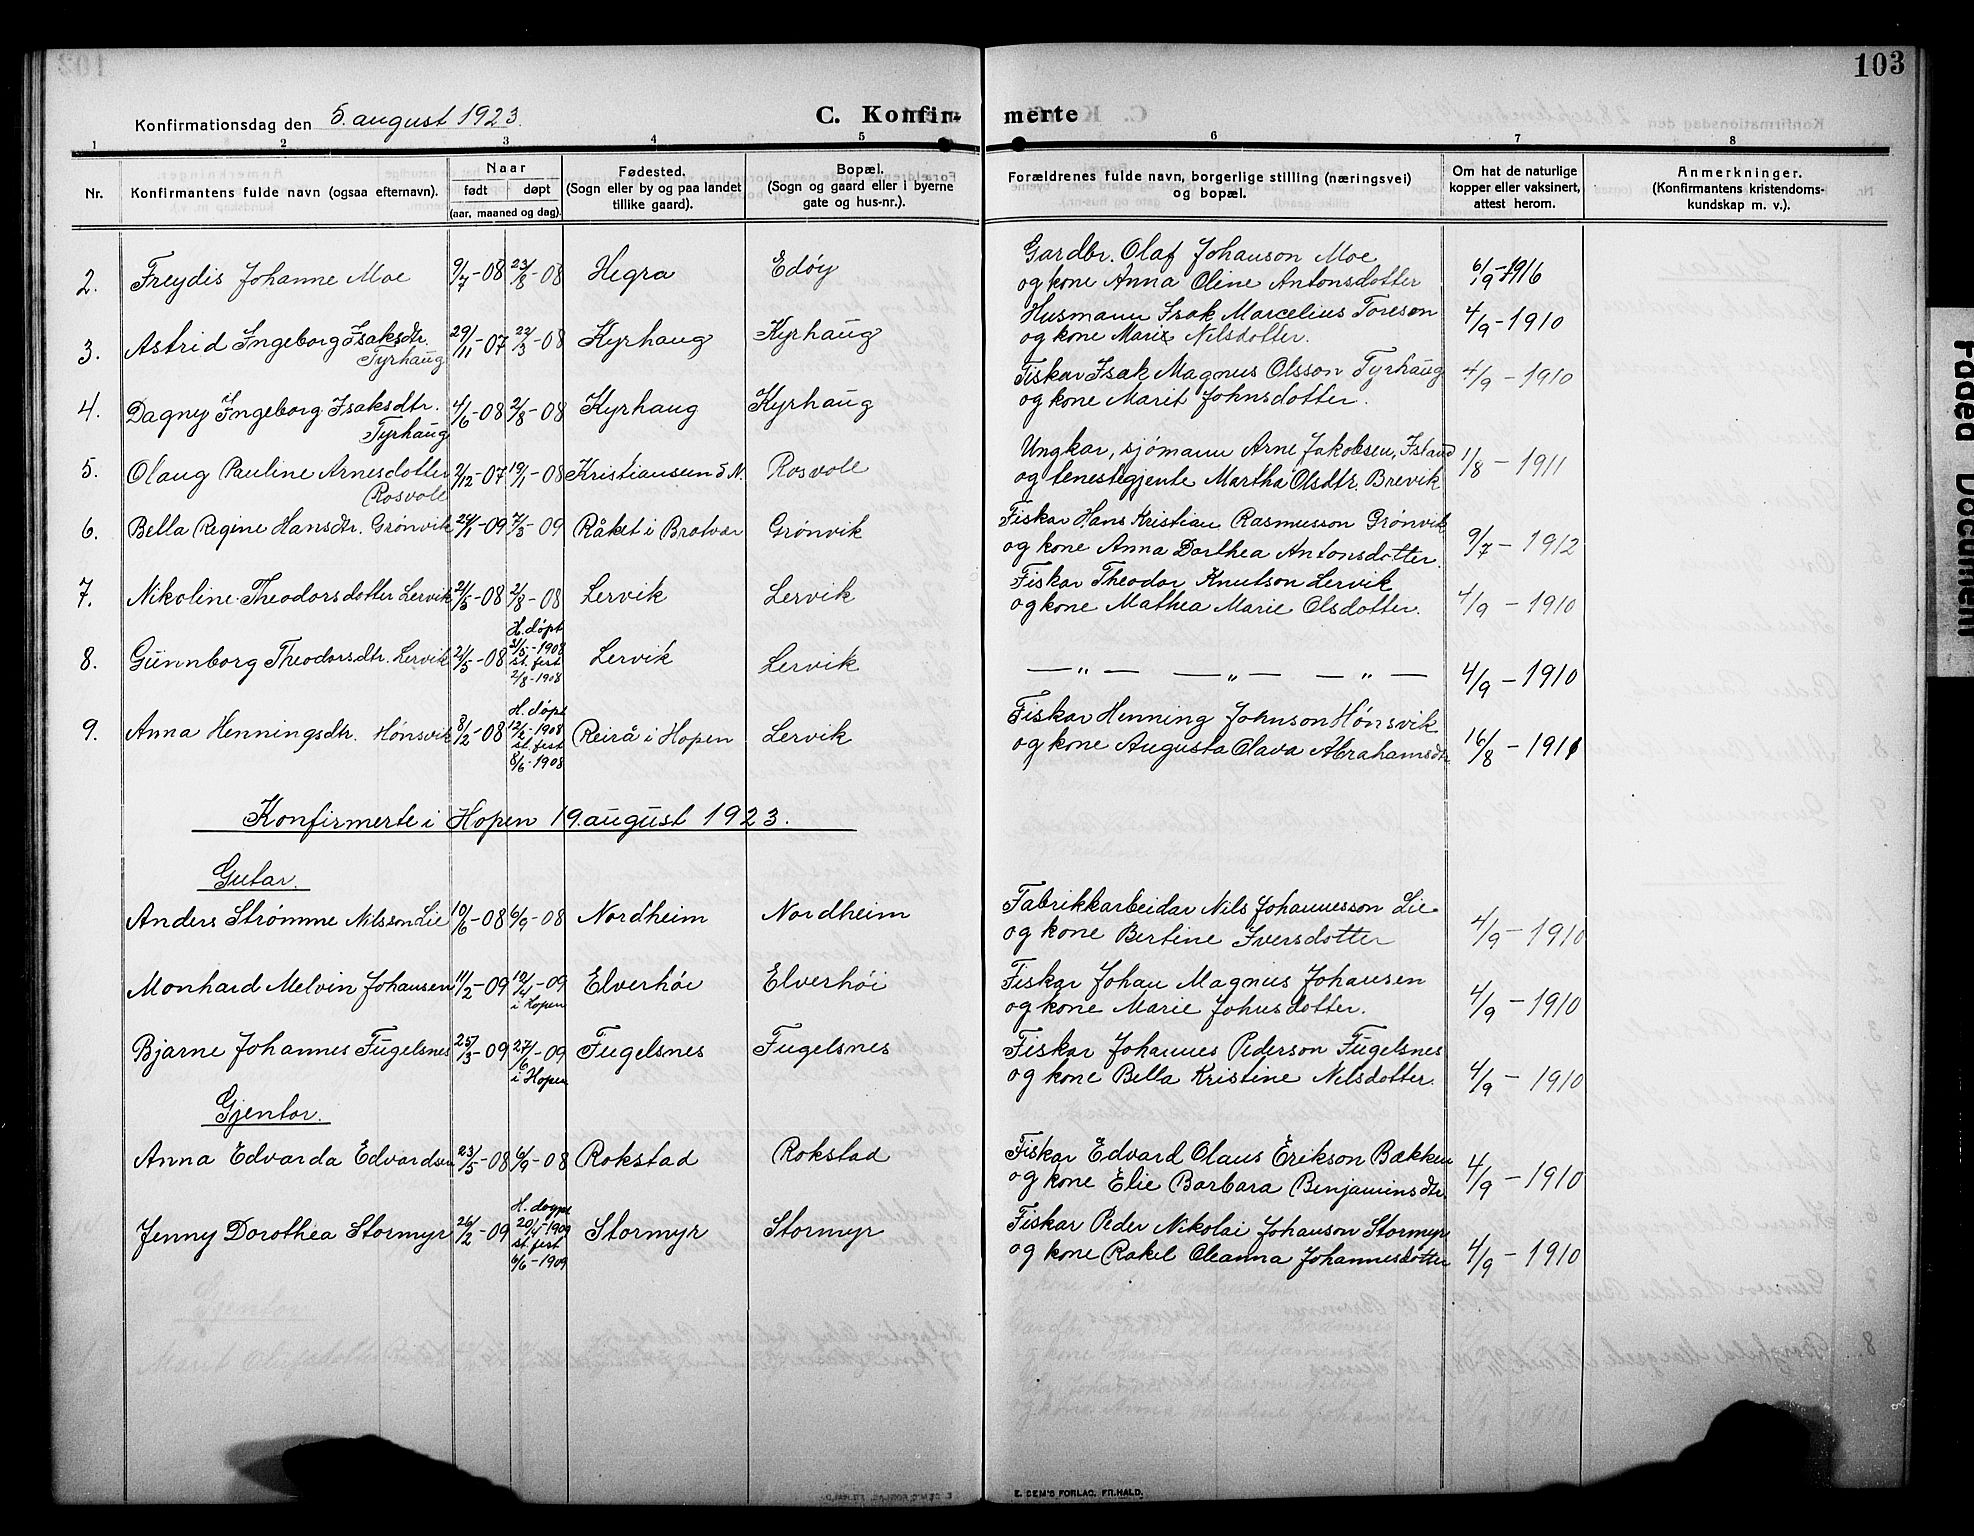 103
Konfirmationsdag den 5. august 1923.
C. Konfir- merte
1 2 3 4 5 6 7 8
Nr.
Konfirmantens fulde navn (ogsaa efternavn).
Naar
født døpt
(aar, maaned og dag).
Fødested.
(Sogn eller by og paa landet
tillike gaard).
Bopæl.
(Sogn og gaard eller i byerne
gate og hus-nr.).
Forældrenes fulde navn, borgerlige stilling (næringsvei)
og bopæl.
Om hat de naturlige
kopper eller vaksinert,
attest herom.
Anmerkninger.
(Konfirmantens kristendoms-
kundskap m. v.).
2. Freydis Johanne Moe 9/7-08 23/8-08 Hegra Edøy
Gardbr. Olaf Johanson Moe
og kone Anna Oline Antonsdotter 6/9-1916
3. Astrid Ingeborg Isaksdtr.
Tyrhaug 29/11-07 22/3-08 Kyrhaug Kyrhaug
Husmann Isak Marcelius Toreson
og kone Marie Nilsdotter. 4/9-1910
4. Dagny Ingeborg Isaksdtr.
Tyrhaug 4/6-08 2/8-08 Kyrhaug Kyrhaug
Fiskar Isak Magnus Olsson Tyrhaug
og kone Marit Johnsdotter. 4/9-1910
5. Olaug Pauline Arnesdotter
Rosvoll 2/12-07 19/1-08 Kristiansun d N. Rosvoll
Ungkar, sjømann Arne Jakobsen, Island
og tenestegjente Martha Olsdtr. Brevik 1/8-1911
6. Bella Regine Hansdtr. Grønvik 24/1-09 7/3-09 Råket i Bratvær Grønvik
Fiskar Hans Kristian Rasmusson Grønvik
og kone Anna Dorthea Antonsdotter. 9/7-1912
7. Nikoline Theodorsdotter Lervik 21/5-08 2/8-08 Lervik Lervik
Fiskar Theodor Knutson Lervik
og kone Mathea Marie Olsdotter. 4/9-1910
8. Gunnborg Theodorsdtr. Lervik 21/5-08
H. døpt
31/5-1908
st. fest
2/8-1908
Lervik Lervik
— „ — — „ — — „ — 4/9-1910
9. Anna Henningsdtr. Hønsvik 8/12-08
H. døpt
12/2-1908
st. fest
8/6-1908
Reirå i Hopen Lervik
Fiskar Henning Johnson Hønsvik
og kone Augusta Olava Abrahamsdtr. 16/8-1911
Konfirmerte i Hopen 19. august 1923.
Gutar.
Anders Strømme Nilsson Lie 10/6-08 6/9-08 Nordheim Nordheim
Fabrikkarbeidar Nils Johannesson Lie
og kone Bertine Iversdotter 4/9-1910
Monhard Melvin Johansen 11/2-09 12/4-09
i Hopen
Elverhøi Elverhøi
Fiskar Johan Magnus Johansen
og kone Marie Johnsdotter. 4/9-1910
Bjarne Johannes Fugelsnes 25/3-09 27/6-09
i Hopen
Fugelsnes Fugelsnes
Fiskar Johannes Pederson Fugelsnes
og kone Bella Kristine Nilsdotter. 4/9-1910
Gjentor.
Anna Edvarda Edvardsen 23/5-08 6/9-08 Rokstad Rokstad
Fiskar Edvard Olaus Erikson Bækken
og kone Elie Barbara Benjaminsdtr. 4/9-1910
Jenny Dorothea Stormyr 26/2-09
H. døypt
20/4-1909
st. fest
6/6-1909
Stormyr Stormyr
Fiskar Peder Nikolai Johanson Stormyr
og kone Rakel Oleanna Johannesdotter 4/9-1910
E. SEM'S FORLAG, FR.HALD.
Faded Document